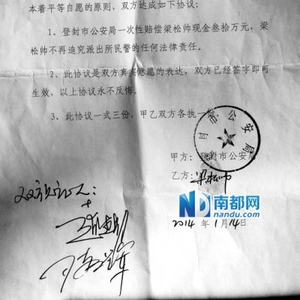 本着平等自愿的原则，双方达成如下协议：
1、登封市公安局一次性赔偿梁松帅现金叁拾万元，梁
松帅不再追究派出所民警的任何法律责任。
2、此协议是双方真实意愿的表达，双方已经签字即可
生效，以上协议永不反悔。
3、此协议一式三份，甲乙双方各执一
甲方：登封市公安局
乙方：梁松帅
双方证人：
南都网
nandu.com
2014年1月14日